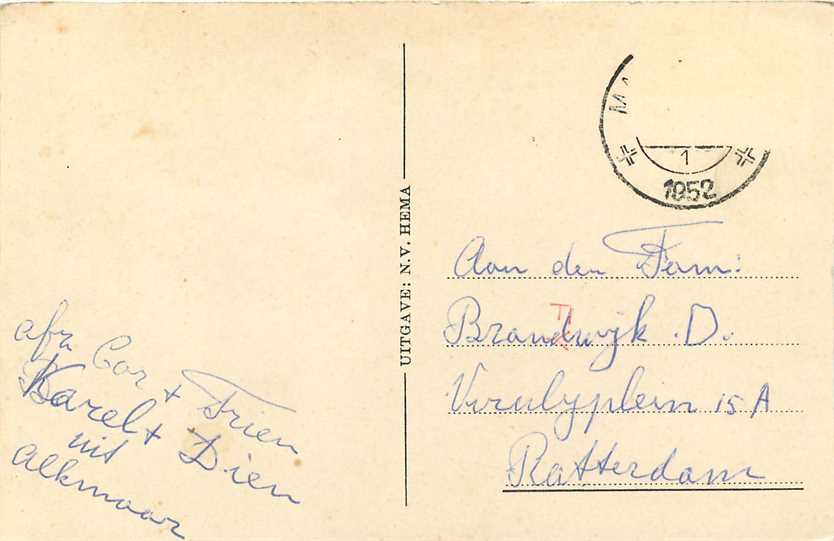 afz. Cor + Trien
Karel + Dien
uit
alkmaar
UITGAVE: N.V. HEMA
1
1952
Aan den Fam:
Brandwijk. D.
Virulyplein 15 A
Rotterdam